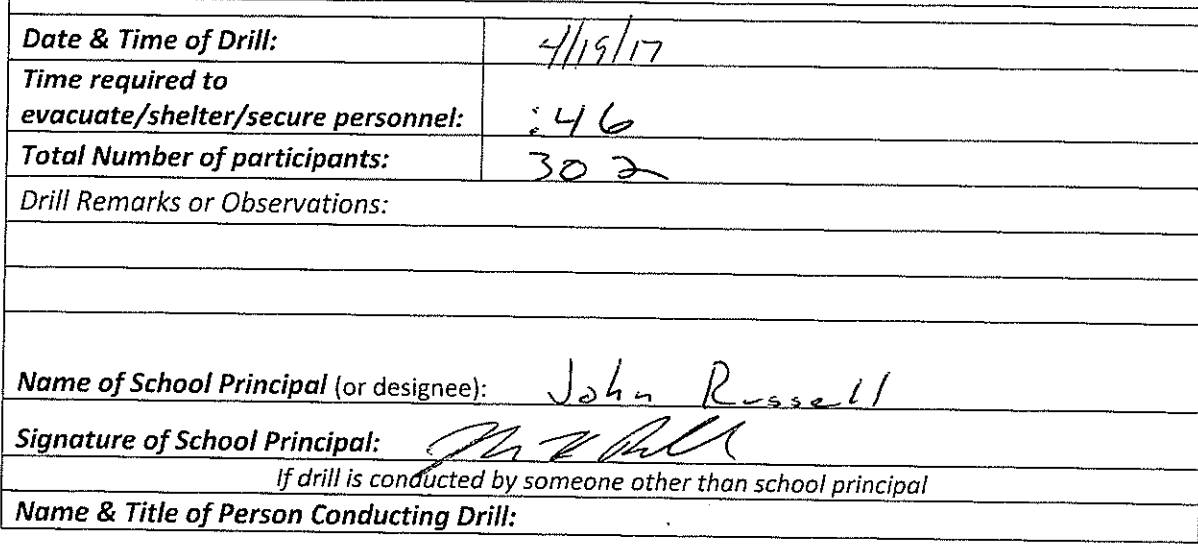 Date & Time of Drill: 4/19/17
Time required to
evacuate/shelter/secure personnel: :46
Total Number of participants: 302
Drill Remarks or Observations:
Name of School Principal (or designee): John Russell
Signature of School Principal:
If drill is conducted by someone other than school principal
Name & Title of Person Conducting Drill: